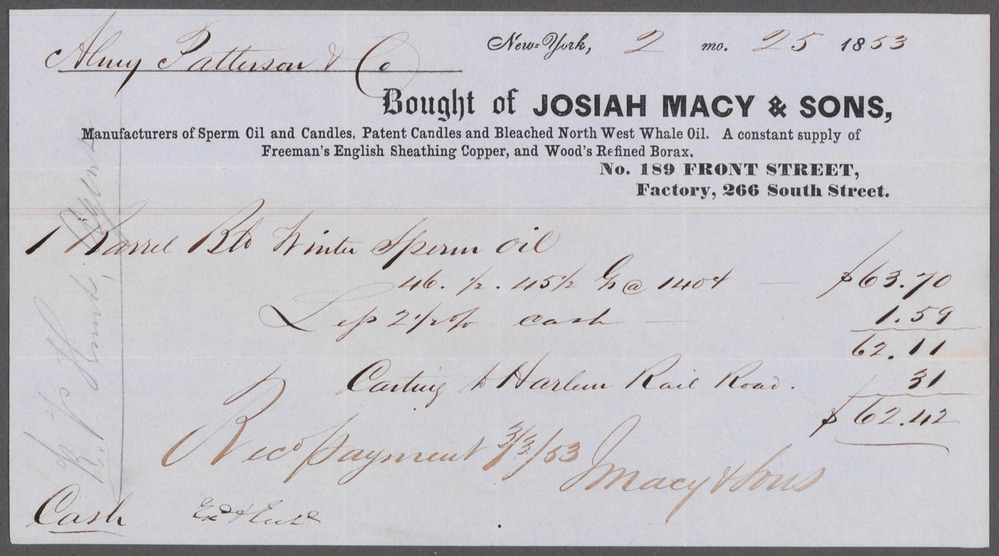 New-York, 2 mo. 25 1853
Almy Patterson & Co
Bought of JOSIAH MACY & SONS,
Manufacturers of Sperm Oil and Candles, Patent Candles and Bleached North West Whale Oil. A constant supply of
Freeman's English Sheathing Copper, and Wood's Refined Borax.
No. 189 FRONT STREET,
Factory, 266 South Street.
1 Barrel Bld Winter Sperm Oil
46. ½. 45½ Gs @ 140¢ — $63.70
Less 2½ % cash — 1.59
62.11
Carting to Harlem Rail Road. 31
$62.42
Recd payment 3/3/53
J Macy & Sons
Cash